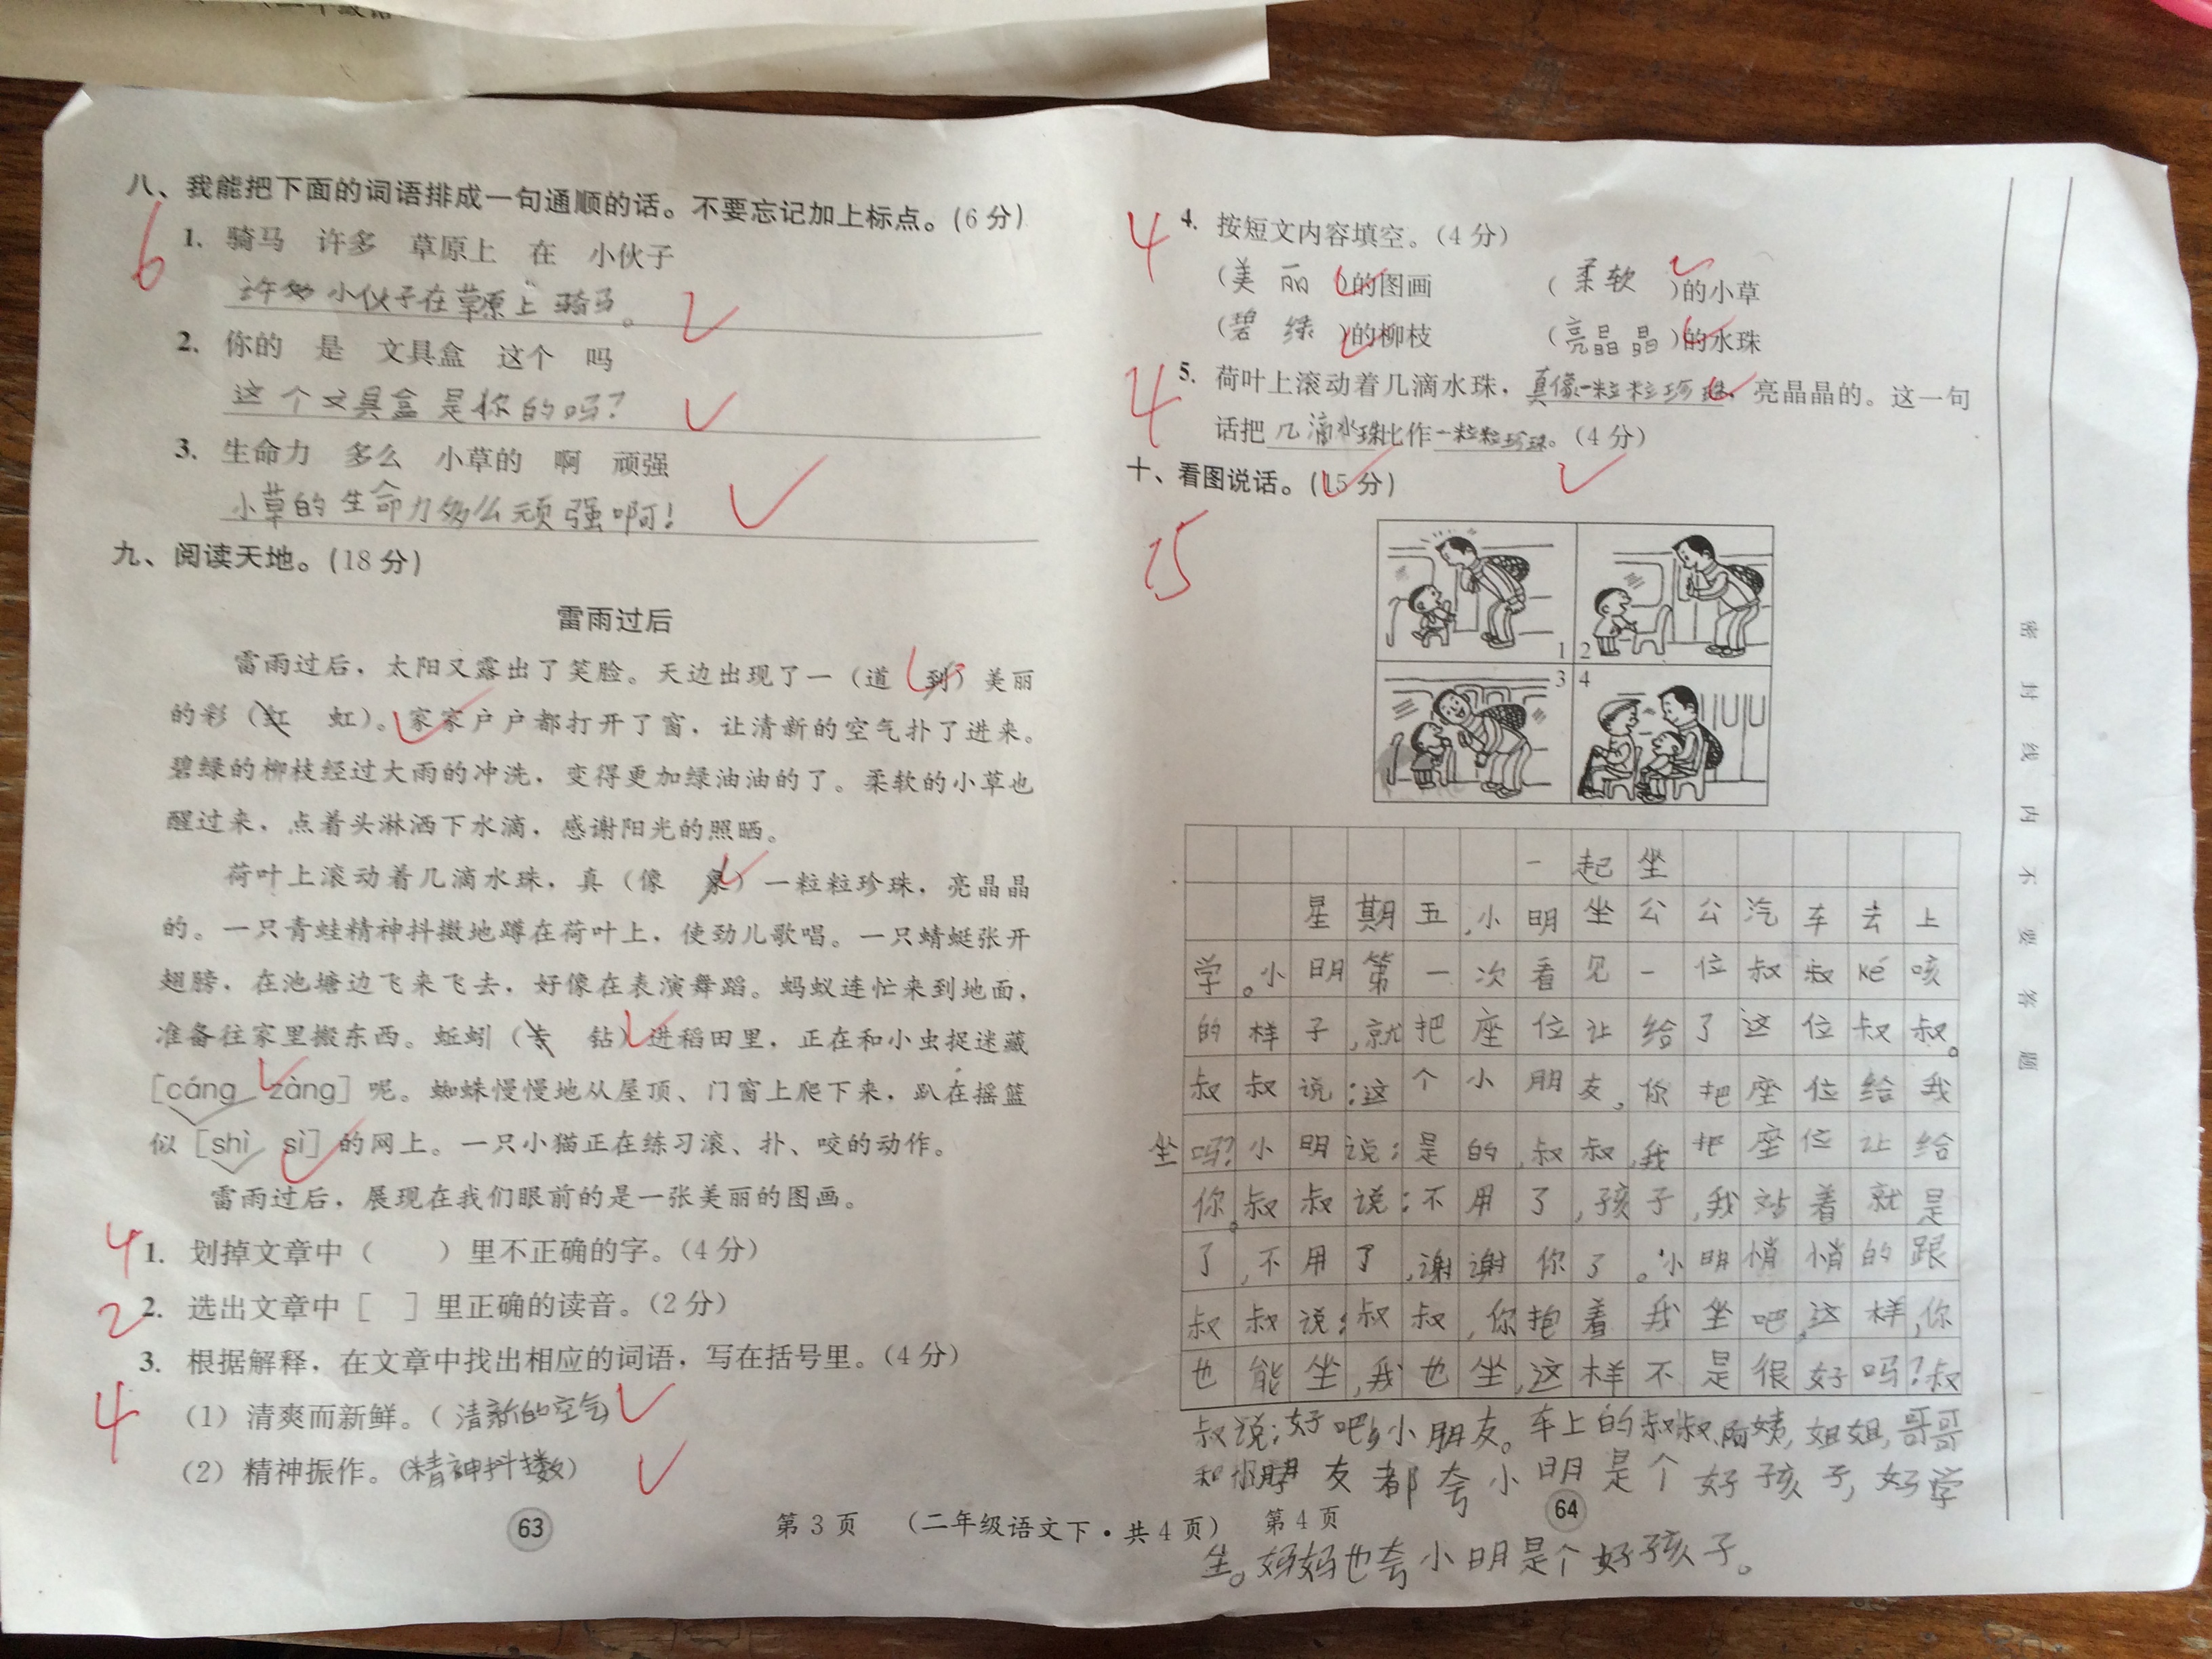 八、我能把下面的词语排成一句通顺的话。不要忘记加上标点。(6分)
6
1. 骑马 许多 草原上 在 小伙子
许多小伙子在草原上骑马。
2. 你的 是 文具盒 这个 吗
这个文具盒是你的吗?
3. 生命力 多么 小草的 啊 顽强
小草的生命力多么顽强啊!
九、阅读天地。(18分)
雷雨过后
雷雨过后，太阳又露出了笑脸。天边出现了一（道 到）美丽
的彩（红 虹）。家家户户都打开了窗，让清新的空气扑了进来。
碧绿的柳枝经过大雨的冲洗，变得更加绿油油的了。柔软的小草也
醒过来，点着头淋洒下水滴，感谢阳光的照晒。
荷叶上滚动着几滴水珠，真（像 象）一粒粒珍珠，亮晶晶
的。一只青蛙精神抖擞地蹲在荷叶上，使劲儿歌唱。一只蜻蜓张开
翅膀，在池塘边飞来飞去，好像在表演舞蹈。蚂蚁连忙来到地面，
准备往家里搬东西。蚯蚓（专 钻）进稻田里，正在和小虫捉迷藏
[cáng zàng]呢。蜘蛛慢慢地从屋顶、门窗上爬下来，趴在摇篮
似[shì sì]的网上。一只小猫正在练习滚、扑、咬的动作。
雷雨过后，展现在我们眼前的是一张美丽的图画。
4
1. 划掉文章中（ ）里不正确的字。(4分)
2
2. 选出文章中[ ]里正确的读音。(2分)
3. 根据解释，在文章中找出相应的词语，写在括号里。(4分)
4
（1）清爽而新鲜。（清新的空气）
（2）精神振作。（精神抖擞）
63
第3页 （二年级语文下·共4页） 第4页
64
4
4. 按短文内容填空。(4分)
（美丽）的图画 （柔软）的小草
（碧绿）的柳枝 （亮晶晶）的水珠
4
5. 荷叶上滚动着几滴水珠，真像一粒粒珍珠，亮晶晶的。这一句
话把几滴水珠比作一粒粒珍珠。(4分)
十、看图说话。(15分)
15
1 2
3 4
一起坐
星期五,小明坐公公汽车去上
学。小明第一次看见一位叔叔ké咳
的样子,就把座位让给了这位叔叔。
叔叔说:这个小朋友,你把座位给我
坐吗?小明说:是的,叔叔,我把座位让给
你。叔叔说:不用了,孩子,我站着就是
了,不用了,谢谢你了。小明悄悄的跟
叔叔说:叔叔,你抱着我坐吧,这样,你
也能坐,我也坐,这样不是很好吗?叔
叔说:好吧,小朋友。车上的叔叔,阿姨,姐姐,哥哥
和 友都夸小明是个好孩子,好学
生。妈妈也夸小明是个好孩子。
密封线内不要答题